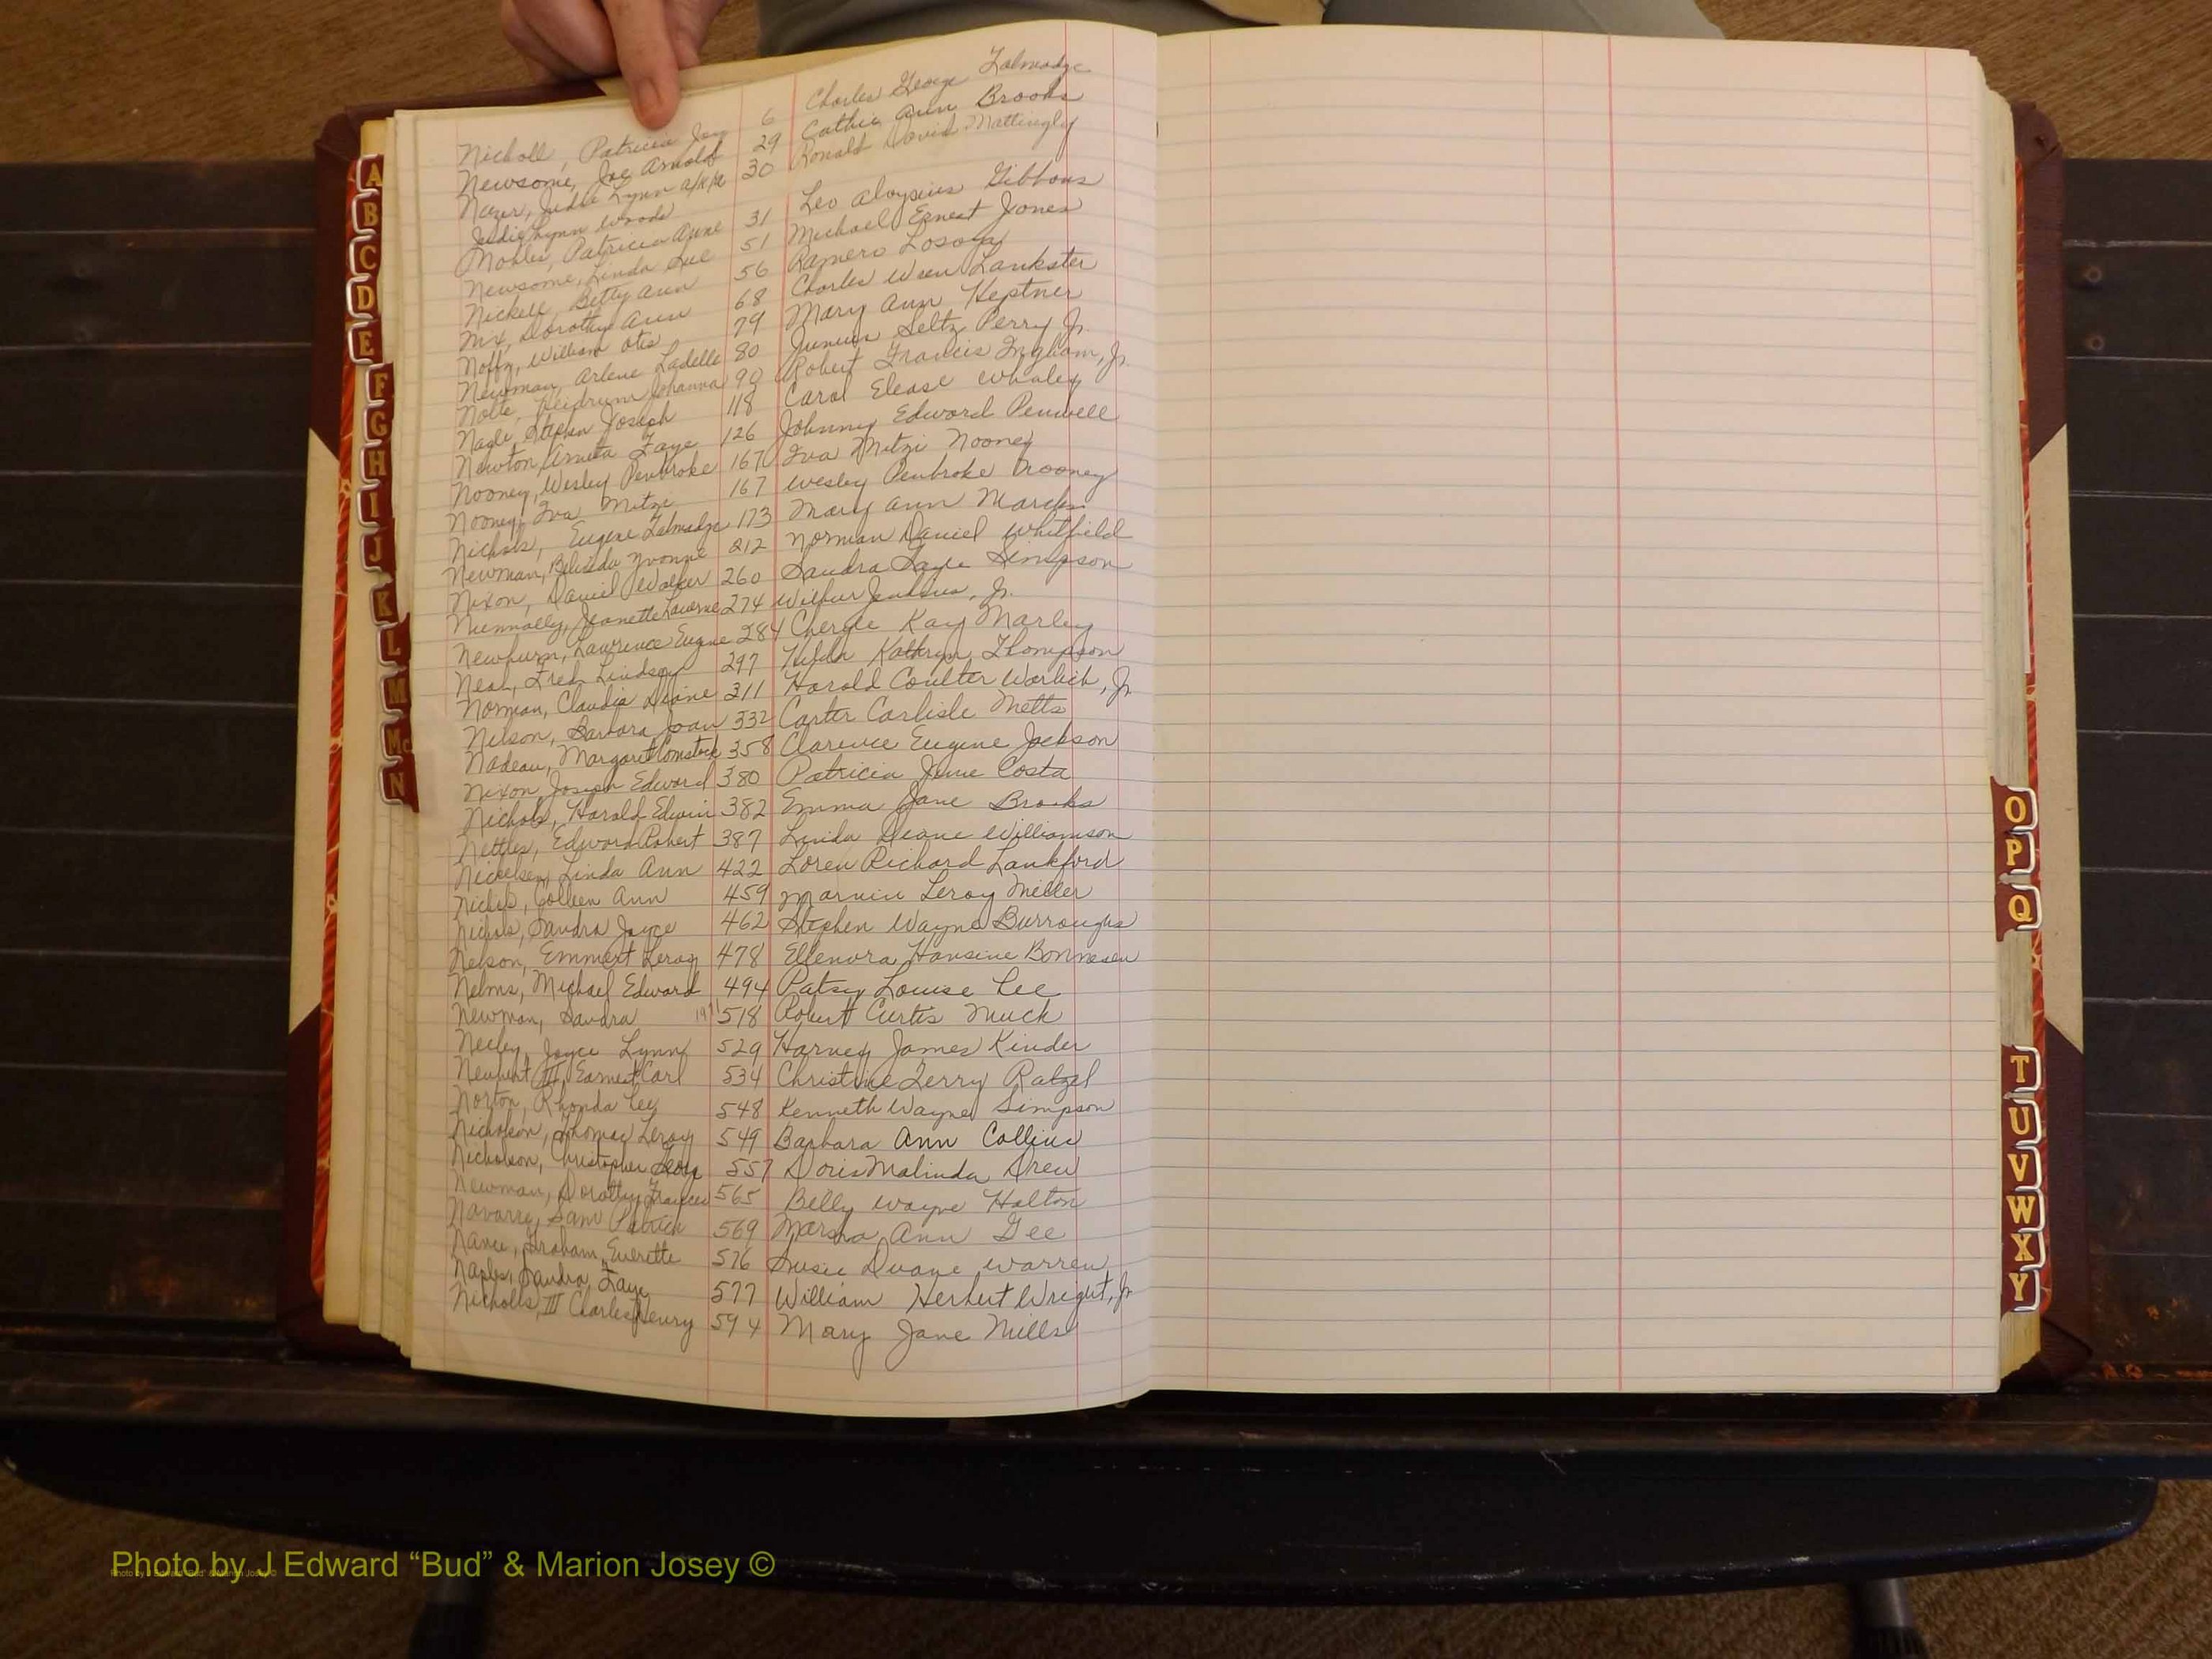 Nicholl, Patricia Joy 6 Charles George Talmadge
Newsome, Joe Arnold 29 Cathie Ann Brooks
Nazer, Judie Lynn a/k/a 30 Ronald David Mattingly
Judie Lynn Woods
Patricia Anne 31 Leo Aloysius Gibbons
Newsome, Linda Sue 51 Michael Ernest Jones
Nickell, Betty Ann 56
Nix, Dorothy Ann 68 Charles Lankster
William Otis 79 Mary Ann Heptner
Newman, Arlene Ladelle 80 Junius Seltz Perry Jr.
Nolte, Johanna 90 Robert Francis Ingham, Jr.
Nagle, Stephen Joseph 118 Carol Elease Whaley
Newton, Faye 126 Johnny Edward Penwell
Nooney, Wesley Penbroke 167 Iva Mitzi Nooney
Nooney, Iva Mitzi 167 Wesley Penbroke Nooney
Nichols, Eugene Talmadge 173 Mary Ann
Newman, Belinda Yvonne 212 Norman Daniel Whitfield
Nixon, Daniel Walker 260 Sandra Faye Simpson
Nunnally, Jeanette Laverne 274 Wilbur Jenkins, Jr.
Lawrence Eugene 284 Cheryle Kay Marley
Neal, Fred Lindsey 297 Hilda Kathryn Thompson
Norman, Claudia Diane 311 Harold Coulter Warlick, Jr
Nelson, Barbara Joan 332 Carter Carlisle Metts
Nadeau, Margaret Comstock 358 Clarence Eugene Jackson
Nixon, Joseph Edward 380 Patricia June Costa
Nichols, Harold Edwin 382 Emma Jane Brooks
Nettles, Edward Robert 387 Linda Deane Williamson
Nickelsen, Linda Ann 422 Loren Richard Lankford
Colleen Ann 459 Marvin Leroy Miller
Nichols, Sandra Joyce 462 Stephen Wayne Burroughs
Nelson, Emmert Leroy 478 Ellenora Hansine Bonnesen
Nelms, Michael Edward 494 Patsy Louise Lee
Newman, Sandra 518 Robert Curtis Muck
Neeley, Joyce Lynn 529 Harvey James Kinder
III, Earnest Carl 534 Christine Terry Ratzel
Norton, Rhonda Ley 548 Kenneth Wayne Simpson
Nicholson, Thomas Leroy 549 Barbara Ann Collins
Nicholson, Christopher 557 Doris Malinda Drew
Newman, Dorothy Frances 565 Billy Wayne Holton
Navarre, Sam Patrick 569 Marsha Ann Gee
Nance, Graham Everette 576 Susie Duane Warren
Naples, Sandra Faye 577 William Herbert Wright, Jr
Nicholls, III Charles Henry 594 Mary Jane Mills
A
B
C
D
E
F
G
H
I
J
K
L
M
Mc
N
O
P
Q
T
U
V
W
X
Y
Photo by J Edward “Bud” & Marion Josey ©
Photo by J Edward “Bud” & Marion Josey ©